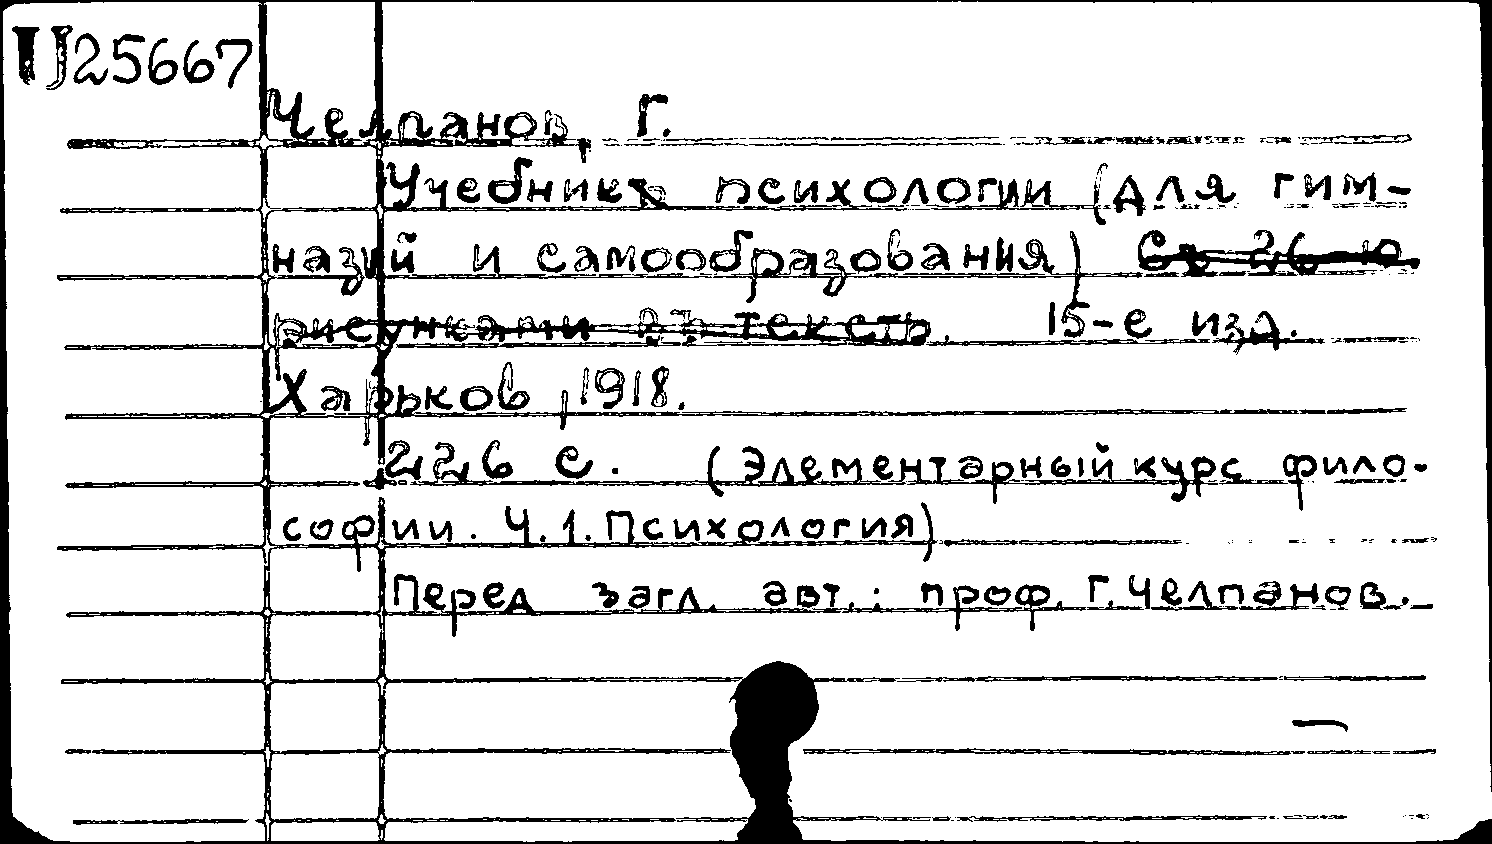 U25667
Челпанов, Г.
Учебникъ психологии (для гим-
назий и самообразования) Съ 26-ю
рисунками въ текстѣ. 15-е изд.
Харьков, 1918.
226 с. (Элементарный курс фило-
софии. Ч.1. Психология)
Перед загл. авт.: проф. Г. Челпанов.